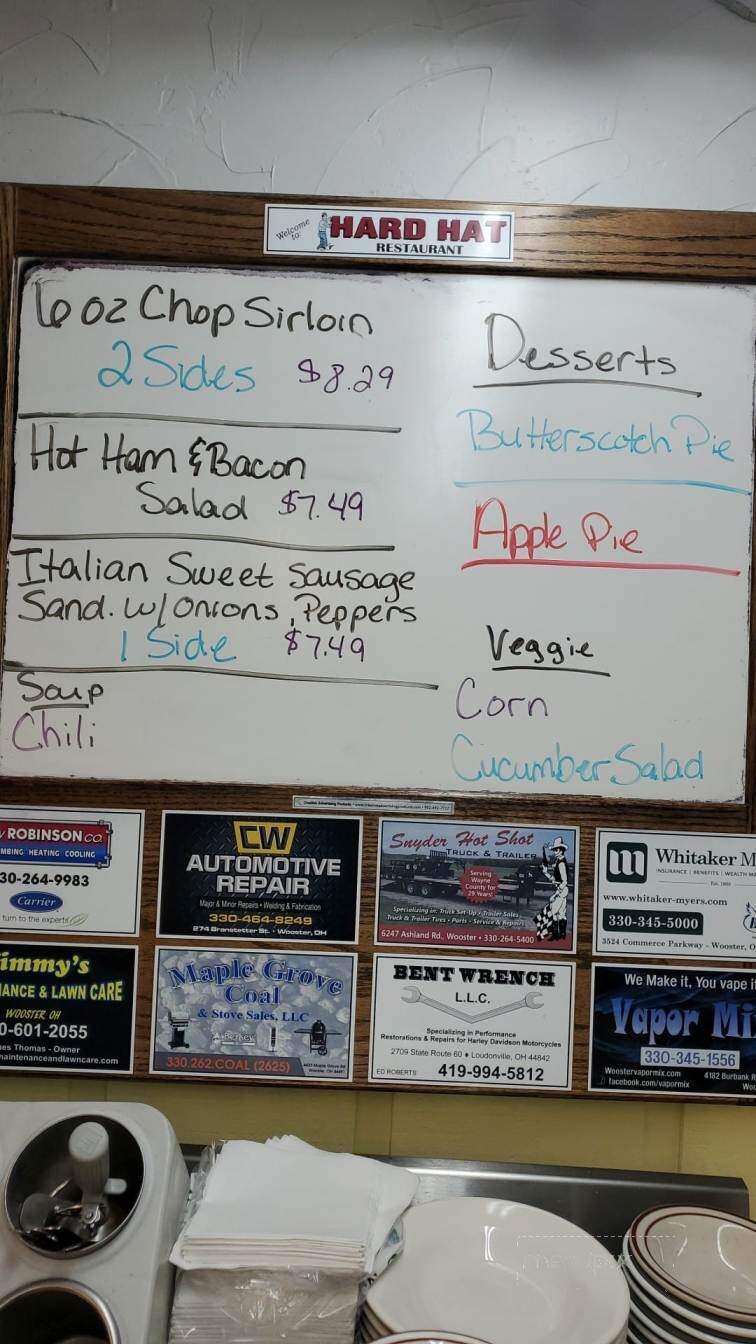 Welcome to:
HARD HAT
RESTAURANT
6 oz Chop Sirloin
2 Sides $8.29
Hot Ham & Bacon
Salad $7.49
Italian Sweet Sausage
Sand. w/onions, Peppers
1 Side $7.49
Soup
Chili
Desserts
Butterscotch Pie
Apple Pie
Veggie
Corn
Cucumber Salad
ROBINSON CO.
MBING HEATING COOLING
30-264-9983
Carrier
turn to the experts
CW
AUTOMOTIVE
REPAIR
Major & Minor Repairs • Welding & Fabrication
330-464-8249
274 Branstetter St. • Wooster, OH
Snyder Hot Shot
TRUCK & TRAILER
Serving
Wayne
County for
29 Years!
Specializing in: Truck Set-Up • Trailer Sales
Truck & Trailer Tires • Parts • Service & Repairs
6247 Ashland Rd., Wooster • 330-264-5400
m
Whitaker M
INSURANCE | BENEFITS | WEALTH MA
www.whitaker-myers.com
330-345-5000
3524 Commerce Parkway - Wooster, O
immy's
ANCE & LAWN CARE
WOOSTER, OH
0-601-2055
es Thomas - Owner
aintenanceandlawncare.com
Maple Grove
Coal
& Stove Sales, LLC
330.262.COAL (2625)
BENT WRENCH
L.L.C.
Specializing in Performance
Restorations & Repairs for Harley Davidson Motorcycles
2709 State Route 60 ♦ Loudonville, OH 44842
ED ROBERTS 419-994-5812
We Make it, You vape i
Vapor Mi
330-345-1556
Woostervapormix.com
facebook.com/vapormix
4182 Burbank R
Woo